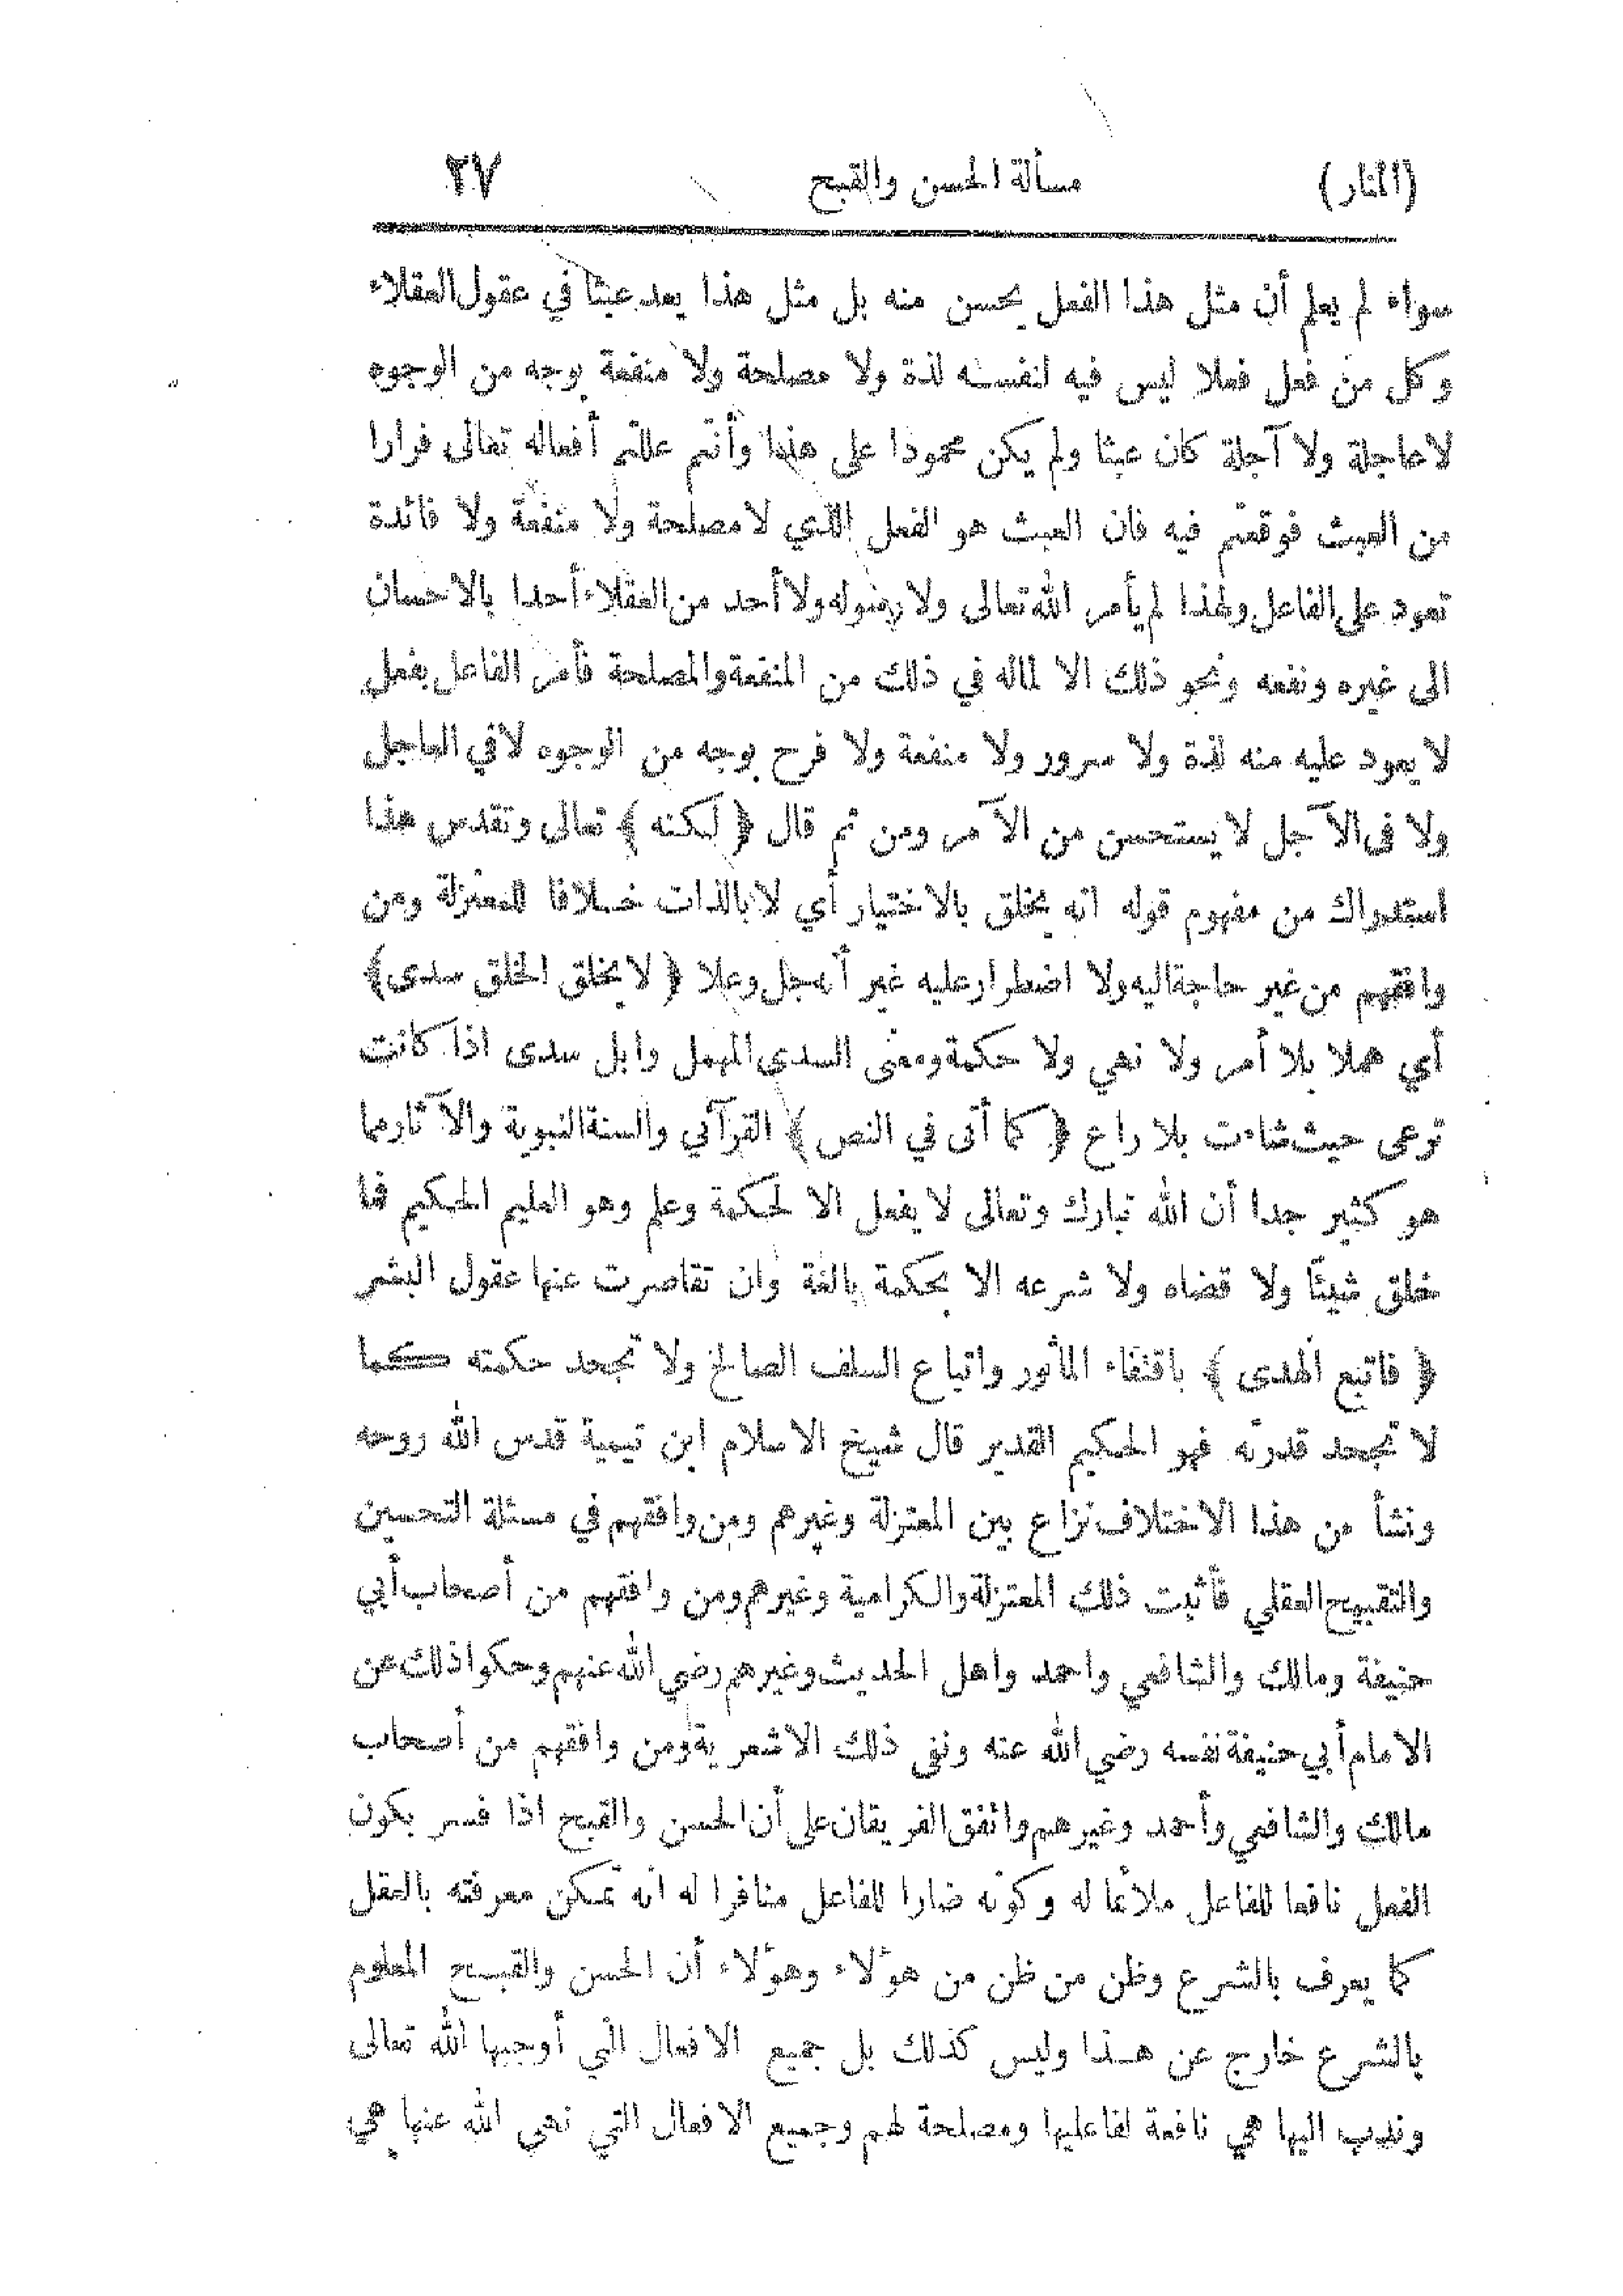 (المنار) مسألة الحسن والقبح ٢٧
سواء لم يعلم أن مثل هذا الفعل يحسن منه بل مثل هذا يعد عبثا في عقول العقلاء
وكل من فعل فعلا ليس فيه لنفسه لذة ولا مصلحة ولا منفعة بوجه من الوجوه
لا عاجلة ولا آجلة كان عبثا ولم يكن محمودا على هذا وأنتم عللتم أفعاله تعالى فرارا
من العبث فوقعتم فيه فان العبث هو الفعل الذي لا مصلحة ولا منفعة ولا فائدة
تعود على الفاعل ولهذا لم يأمر الله تعالى ولا رسوله ولا أحد من العقلاء أحدا بالاحسان
الى غيره ونفعه ونحو ذلك الا لماله في ذلك من المنفعة والمصلحة فأمر الفاعل بفعل
لا يعود عليه منه لذة ولا سرور ولا منفعة ولا فرح بوجه من الوجوه لا في العاجل
ولا في الآجل لا يستحسن من الآمر ومن ثم قال ﴿ لكنه ﴾ تعالى وتقدس هذا
استدراك من مفهوم قوله انه يخلق بالاختيار أي لا بالذات خلافا للمعتزلة ومن
وافقهم من غير حاجة اليه ولا اضطرار عليه غير أنه جل وعلا ﴿ لا يخلق الخلق سدى ﴾
أي هملا بلا أمر ولا نهي ولا حكمة ومعنى السدى المهمل وابل سدى اذا كانت
ترعى حيث شاءت بلا راع ﴿ كما أتى في النص ﴾ القرآني والسنة النبوية والآثار مما
هو كثير جدا أن الله تبارك وتعالى لا يفعل الا لحكمة وعلم وهو العليم الحكيم فما
خلق شيئا ولا قضاه ولا شرعه الا بحكمة بالغة وان تقاصرت عنها عقول البشر
﴿ فاتبع الهدى ﴾ باقتفاء المأثور واتباع السلف الصالح ولا تجحد حكمته كما
لا تجحد قدرته فهو الحكيم القدير قال شيخ الاسلام ابن تيمية قدس الله روحه
ونشأ من هذا الاختلاف نزاع بين المعتزلة وغيرهم ومن وافقهم في مسئلة التحسين
والتقبيح العقلي فأثبت ذلك المعتزلة والكرامية وغيرهم ومن وافقهم من أصحاب أبي
حنيفة ومالك والشافعي واحمد واهل الحديث وغيرهم رضي الله عنهم وحكوا ذلك عن
الامام أبي حنيفة نفسه رضي الله عنه ونفى ذلك الاشعرية ومن وافقهم من أصحاب
مالك والشافعي وأحمد وغيرهم واتفق الفريقان على أن الحسن والقبح اذا فسر بكون
الفعل نافعا للفاعل ملائما له وكونه ضارا للفاعل منافرا له انه تمكن معرفته بالعقل
كما يعرف بالشرع وظن من ظن من هؤلاء وهؤلاء أن الحسن والقبح المعلوم
بالشرع خارج عن هذا وليس كذلك بل جميع الافعال التي أوجبها الله تعالى
وندب اليها هي نافعة لفاعليها ومصلحة لهم وجميع الافعال التي نهى الله عنها هي